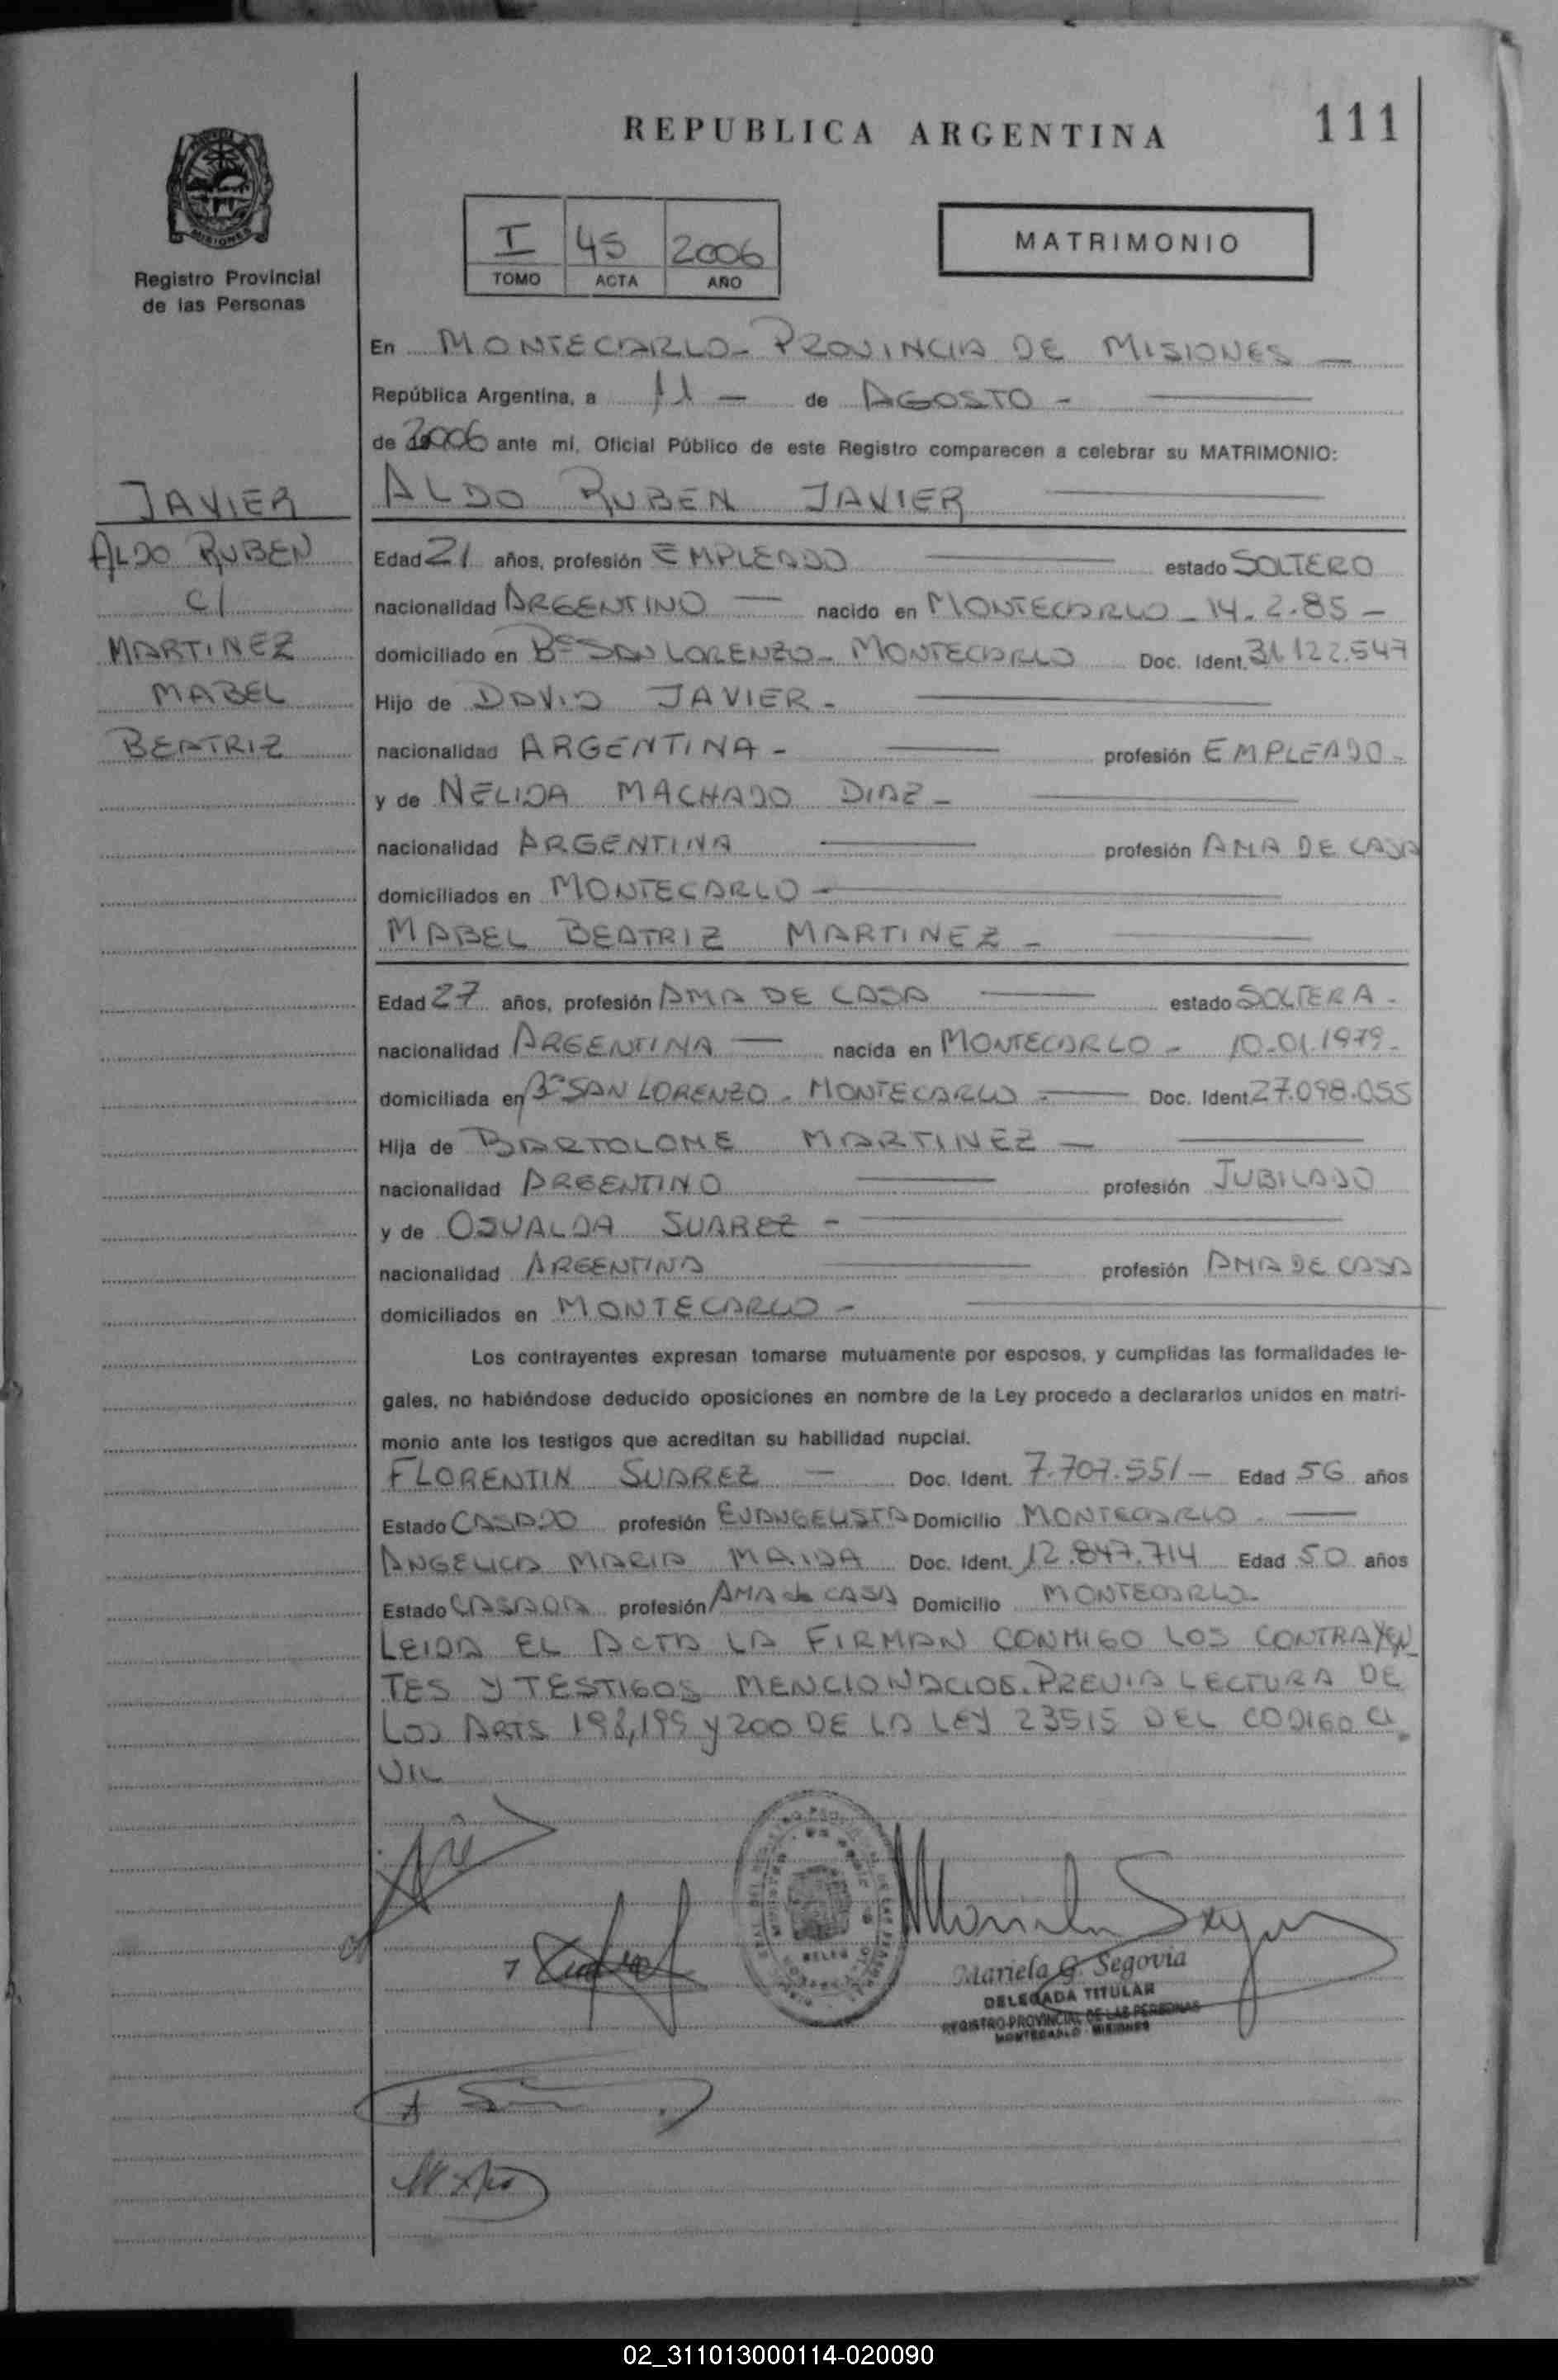 REPUBLICA ARGENTINA
111
MISIONES
Registro Provincial
de las Personas
I 45 2006
TOMO ACTA AÑO
MATRIMONIO
En MONTECARLO - PROVINCIA DE MISIONES -
República Argentina, a 11 - de AGOSTO -
de 2006 ante mí, Oficial Público de este Registro comparecen a celebrar su MATRIMONIO:
JAVIER
ALDO RUBEN
C/
MARTINEZ
MABEL
BEATRIZ
ALDO RUBEN JAVIER
Edad 21 años, profesión EMPLEADO estado SOLTERO
nacionalidad ARGENTINO - nacido en MONTECARLO - 14.2.85 -
domiciliado en Bº SAN LORENZO - MONTECARLO Doc. Ident. 31.122.547
Hijo de DAVID JAVIER -
nacionalidad ARGENTINA - profesión EMPLEADO -
y de NELIDA MACHADO DIAZ -
nacionalidad ARGENTINA profesión AMA DE CASA
domiciliados en MONTECARLO -
MABEL BEATRIZ MARTINEZ -
Edad 27 años, profesión AMA DE CASA estado SOLTERA -
nacionalidad ARGENTINA - nacida en MONTECARLO - 10-01.1979 -
domiciliada en Bº SAN LORENZO - MONTECARLO - Doc. Ident. 27.098.055
Hija de BARTOLOME MARTINEZ -
nacionalidad ARGENTINO profesión JUBILADO
y de OSVALDA SUAREZ -
nacionalidad ARGENTINA profesión AMA DE CASA
domiciliados en MONTECARLO -
Los contrayentes expresan tomarse mutuamente por esposos, y cumplidas las formalidades le-
gales, no habiéndose deducido oposiciones en nombre de la Ley procedo a declararlos unidos en matri-
monio ante los testigos que acreditan su habilidad nupcial.
FLORENTIN SUAREZ - Doc. Ident. 7.707.551 - Edad 56 años
Estado CASADO profesión EVANGELISTA Domicilio MONTECARLO -
ANGELICA MARIA MAIDA Doc. Ident. 12.847.714 Edad 50 años
Estado CASADA profesión AMA de CASA Domicilio MONTECARLO
LEIDA EL ACTA LA FIRMAN CONMIGO LOS CONTRAYEN
TES Y TESTIGOS MENCIONADOS. PREVIA LECTURA DE
LOS ARTS 198, 199 y 200 DE LA LEY 23515 DEL CODIGO CI
VIL
Mariela G. Segovia
DELEGADA TITULAR
REGISTRO PROVINCIAL DE LAS PERSONAS
MONTECARLO - MISIONES
02_311013000114-020090